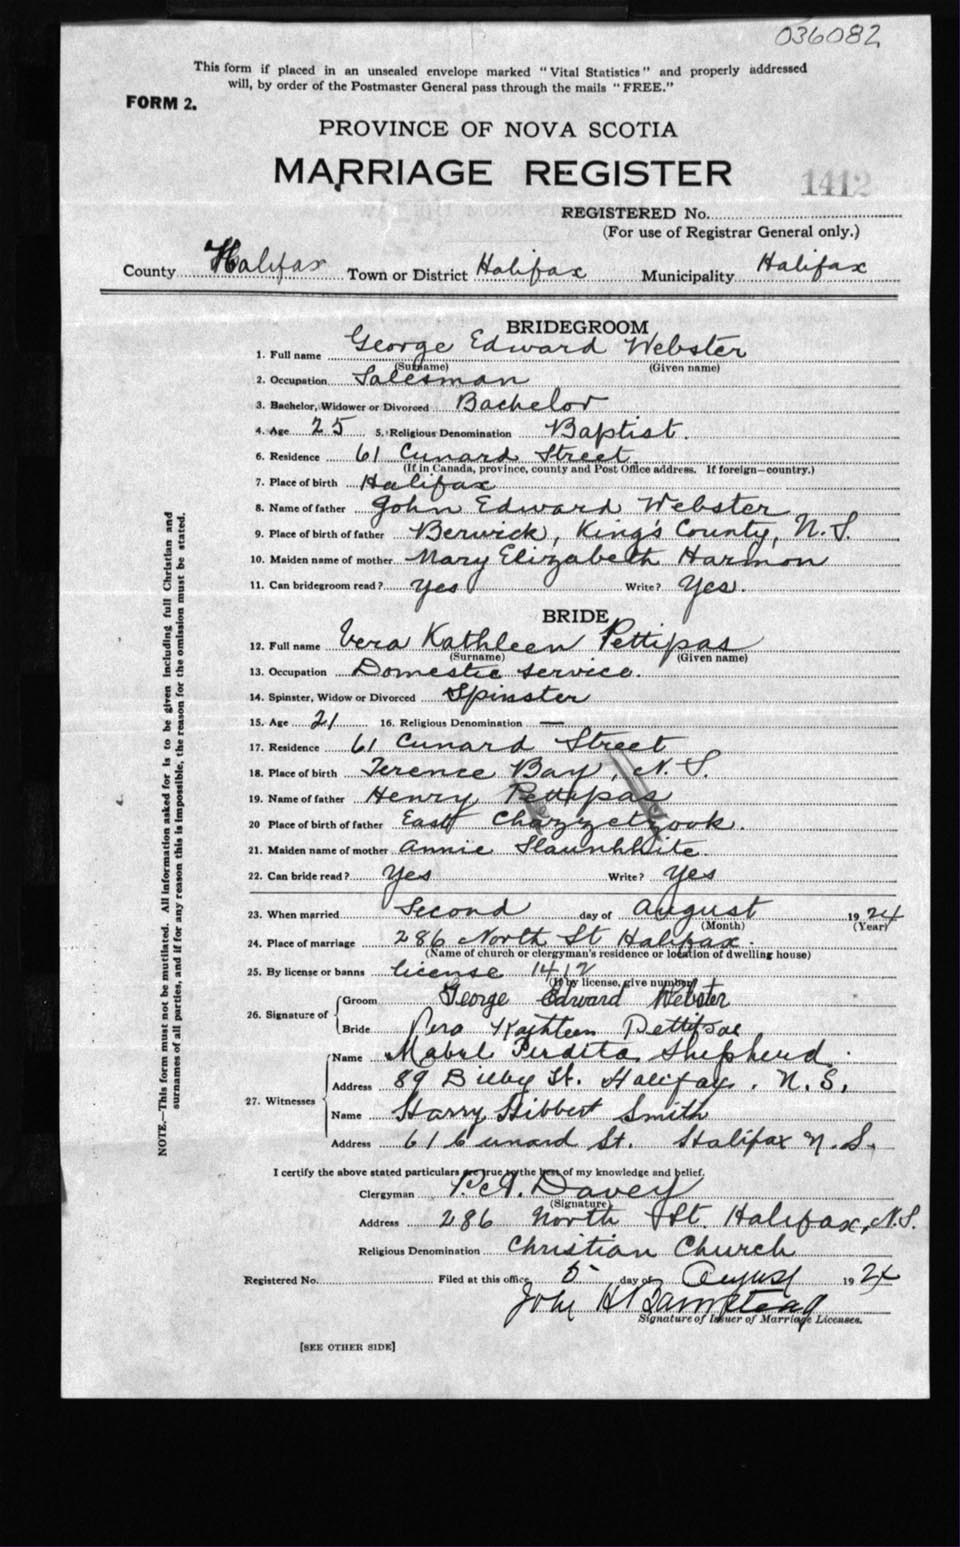 036082
This form if placed in an unsealed envelope marked "Vital Statistics" and properly addressed
will, by order of the Postmaster General pass through the mails "FREE."
FORM 2.
PROVINCE OF NOVA SCOTIA
MARRIAGE REGISTER
1412
REGISTERED No.
(For use of Registrar General only.)
County Halifax Town or District Halifax Municipality Halifax
BRIDEGROOM
1. Full name George Edward Webster
(Surname) (Given name)
2. Occupation Salesman
3. Bachelor, Widower or Divorced Bachelor
4. Age 25 5. Religious Denomination Baptist.
6. Residence 61 Cunard Street.
(If in Canada, province, county and Post Office address. If foreign—country.)
7. Place of birth Halifax
8. Name of father John Edward Webster
9. Place of birth of father Berwick, King's County, N.S.
10. Maiden name of mother Mary Elizabeth Harmon
11. Can bridegroom read? Yes Write? Yes.
BRIDE
12. Full name Vera Kathleen Pettipas
(Surname) (Given name)
13. Occupation Domestic service.
14. Spinster, Widow or Divorced Spinster
15. Age 21 16. Religious Denomination —
17. Residence 61 Cunard Street
18. Place of birth Terence Bay, N.S.
19. Name of father Henry Pettipas
20 Place of birth of father East Chezzetzook.
21. Maiden name of mother Annie Slaunhhite
22. Can bride read? Yes Write? Yes
23. When married Second day of August 1924
(Month) (Year)
24. Place of marriage 286 North St Halifax.
(Name of church or clergyman's residence or location of dwelling house)
25. By license or banns license 1412
(If by license, give number)
26. Signature of
Groom George Edward Webster
Bride Vera Kathleen Pettipas
27. Witnesses
Name Mabel Perdita Shepherd.
Address 89 Bilby St. Halifax, N.S.
Name Harry Hibbert Smith
Address 61 Cunard St. Halifax N.S.
I certify the above stated particulars are true to the best of my knowledge and belief.
Clergyman Davey
(Signature)
Address 286 North St. Halifax, N.S.
Religious Denomination Christian Church
Registered No. Filed at this office 5 day of August 1924
John
Signature of Issuer of Marriage Licenses.
[SEE OTHER SIDE]
NOTE.—This form must not be mutilated. All information asked for is to be given including full Christian and
surnames of all parties, and if for any reason this is impossible, the reason for the omission must be stated.